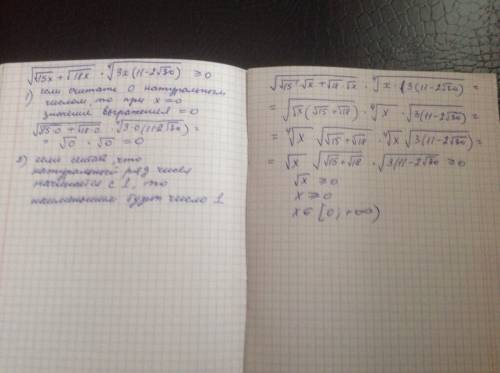 √(√15x + √18x) · ⁴√(3x(11-2√30)) ≥ 0
1) если считать 0 натуральным
числом, то при x = 0
значение выражения = 0
√(√15·0 + √18·0) · ⁴√(3·0(11-2√30)) =
= √0 · √0 = 0
2) если считать, что
натуральный ряд чисел
начинается с 1, то
наименьшим будет число 1
√(√15·√x + √18·√x) · ⁴√(x·3(11-2√30)) =
= √(√x(√15+√18)) · ⁴√x · √(3(11-2√30)) =
= ⁴√x · √(√15+√18) · ⁴√x · √(3(11-2√30)) =
= √x · √(√15+√18) · √(3(11-2√30)) ≥ 0
√x ≥ 0
x ≥ 0
x ∈ [0; +∞)